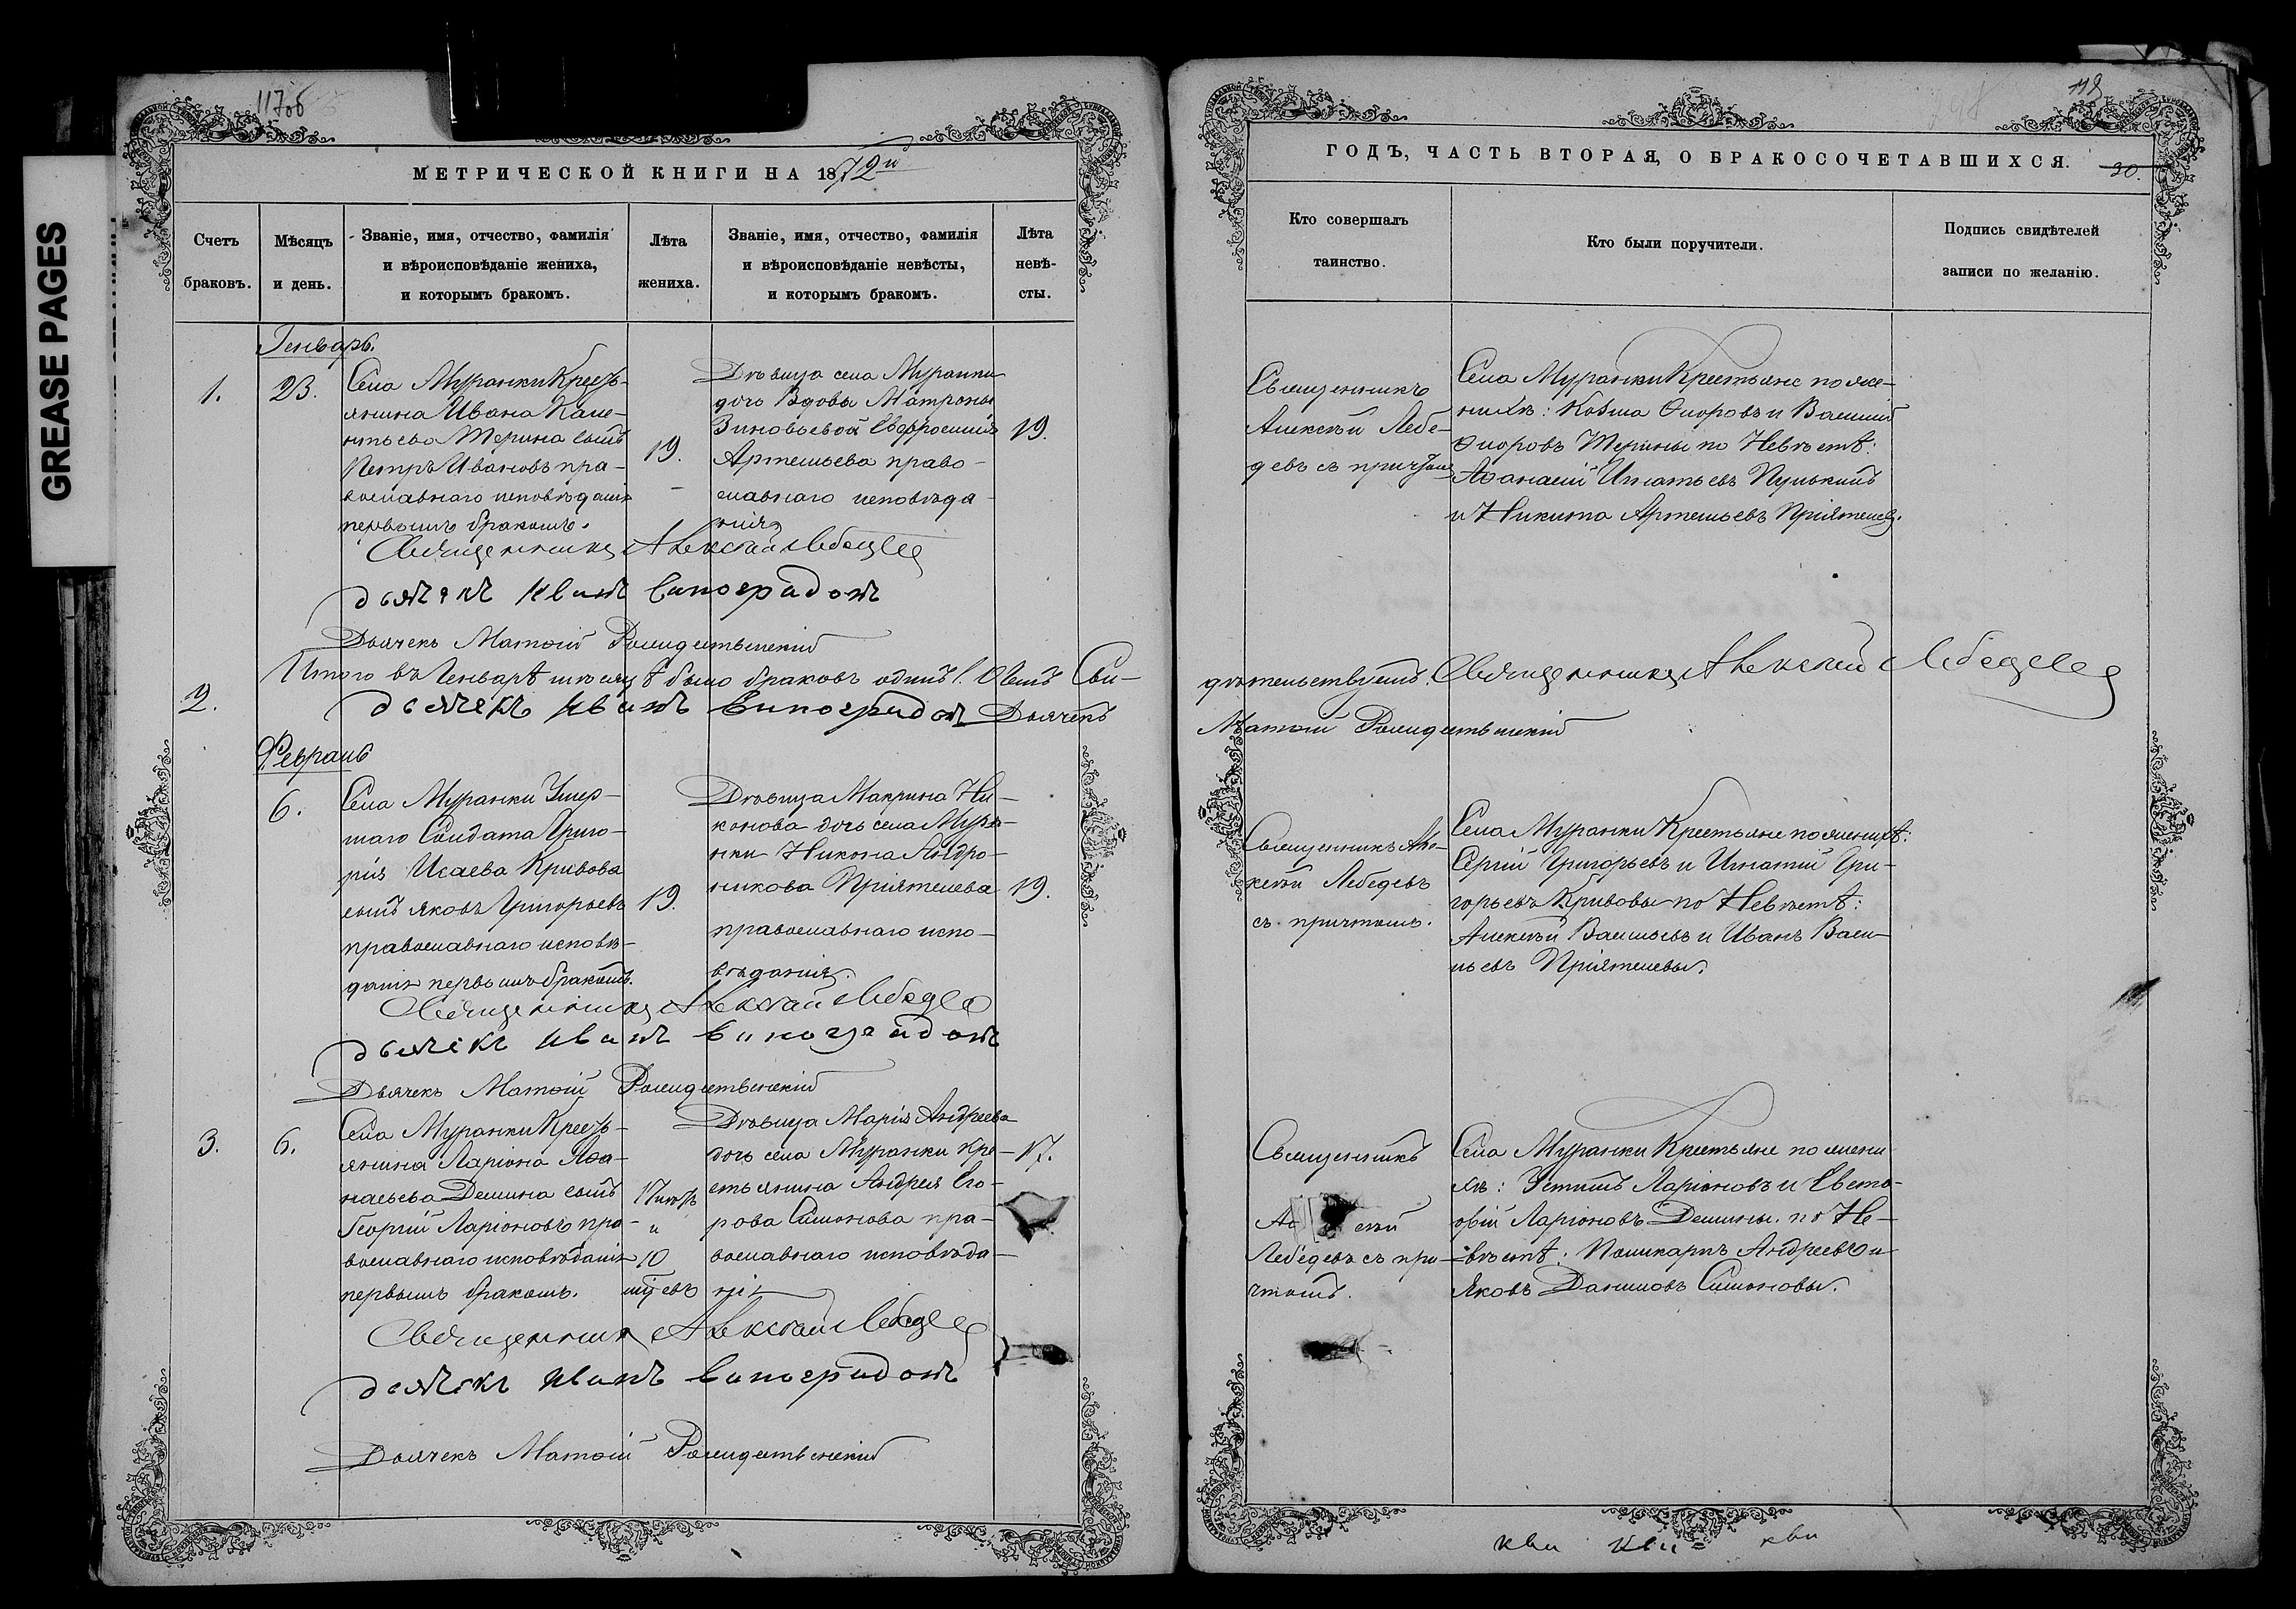 GREASE PAGES
117об
МЕТРИЧЕСКОЙ КНИГИ НА 1872й
Счетъ браковъ.
Мѣсяцъ и день.
Званіе, имя, отчество, фамилія
и вѣроисповѣданіе жениха,
и которымъ бракомъ.
Лѣта жениха.
Званіе, имя, отчество, фамилія
и вѣроисповѣданіе невѣсты,
и которымъ бракомъ.
Лѣта невѣ-
сты.
Генварь.
1.
23.
Села Муранки Кресть-
янина Ивана
Петръ Ивановъ пра-
вославнаго исповѣданія
первымъ бракомъ.
19.
Дѣвица села Муранки
дочь Вдовы Матроны
Зиновьевой Евфросинія
Артемьева право-
славнаго исповѣда-
нія
19.
Священникъ Алексей Лебедев
дьячекъ Иванъ Виноградовъ
Дьячекъ Матѳій Рождественскій
Итого въ Генварѣ мѣсяцѣ было браковъ одинъ 1. Сви-
дьячекъ Иванъ Виноградов Дьячекъ
2.
Февраль
6.
Села Муранки Умер-
шаго Солдата Григо-
рія Исаева Кривова
сынъ Яковъ Григорьевъ
православнаго исповѣ-
данія первымъ бракомъ.
19.
Дѣвица Макрина Ни-
конова дочь села Мура-
нки Никона Андро-
никова Пріятелева
православнаго испо-
вѣданія.
19.
Священникъ Алексей Лебедев
дьячекъ Иванъ Виноградовъ
Дьячекъ Матѳій Рождественскій
3.
6.
Села Муранки Кресть-
янина Ларіона Аѳа-
насьева Демина сынъ
Георгій Ларіоновъ пра-
вославнаго исповѣданія
первымъ бракомъ.
17
и
10
Дѣвица Марія Андреева
дочь села Муранки кре-
стьянина Андрея Его-
рова Симонова пра-
вославнаго исповѣда-
нія
17.
Священник Алексей Лебедев
дьячекъ Иванъ Виноградовъ
Дьячекъ Матѳій Рождественскій
30.
ГОДЪ, ЧАСТЬ ВТОРАЯ, О БРАКОСОЧЕТАВШИХСЯ.
Кто совершалъ
таинство.
Кто были поручители.
Подпись свидѣтелей
записи по желанію.
Священникъ
Алексѣй Лебе-
девъ съ причтомъ
Села Муранки Крестьяне по же-
нихѣ: Козма Ѳедоровъ и Василій
по Невѣстѣ:
Аѳанасій Игнатьевъ
и Никита Артемьевъ Пріятелевъ.
дѣтельствуемъ. Священникъ Алексей Лебедев
Матѳій Рождественскій
Священникъ Але-
ксѣй Лебедевъ
съ причтомъ.
Села Муранки Крестьяне по женихѣ:
Сергій Григорьевъ и Игнатій Гри-
горьевъ Кривовы по Невѣстѣ:
Алексѣй Васильевъ и Иванъ Васи-
льевъ Пріятелевы.
Священникъ
Лебедевъ съ при-
чтомъ.
Села Муранки Крестьяне по жени-
хѣ: Устинъ Ларіоновъ и
Ларіоновъ Демины. по Не-
вѣстѣ: Поликарпъ Андреевъ и
Яковъ Даниловъ Симоновы.